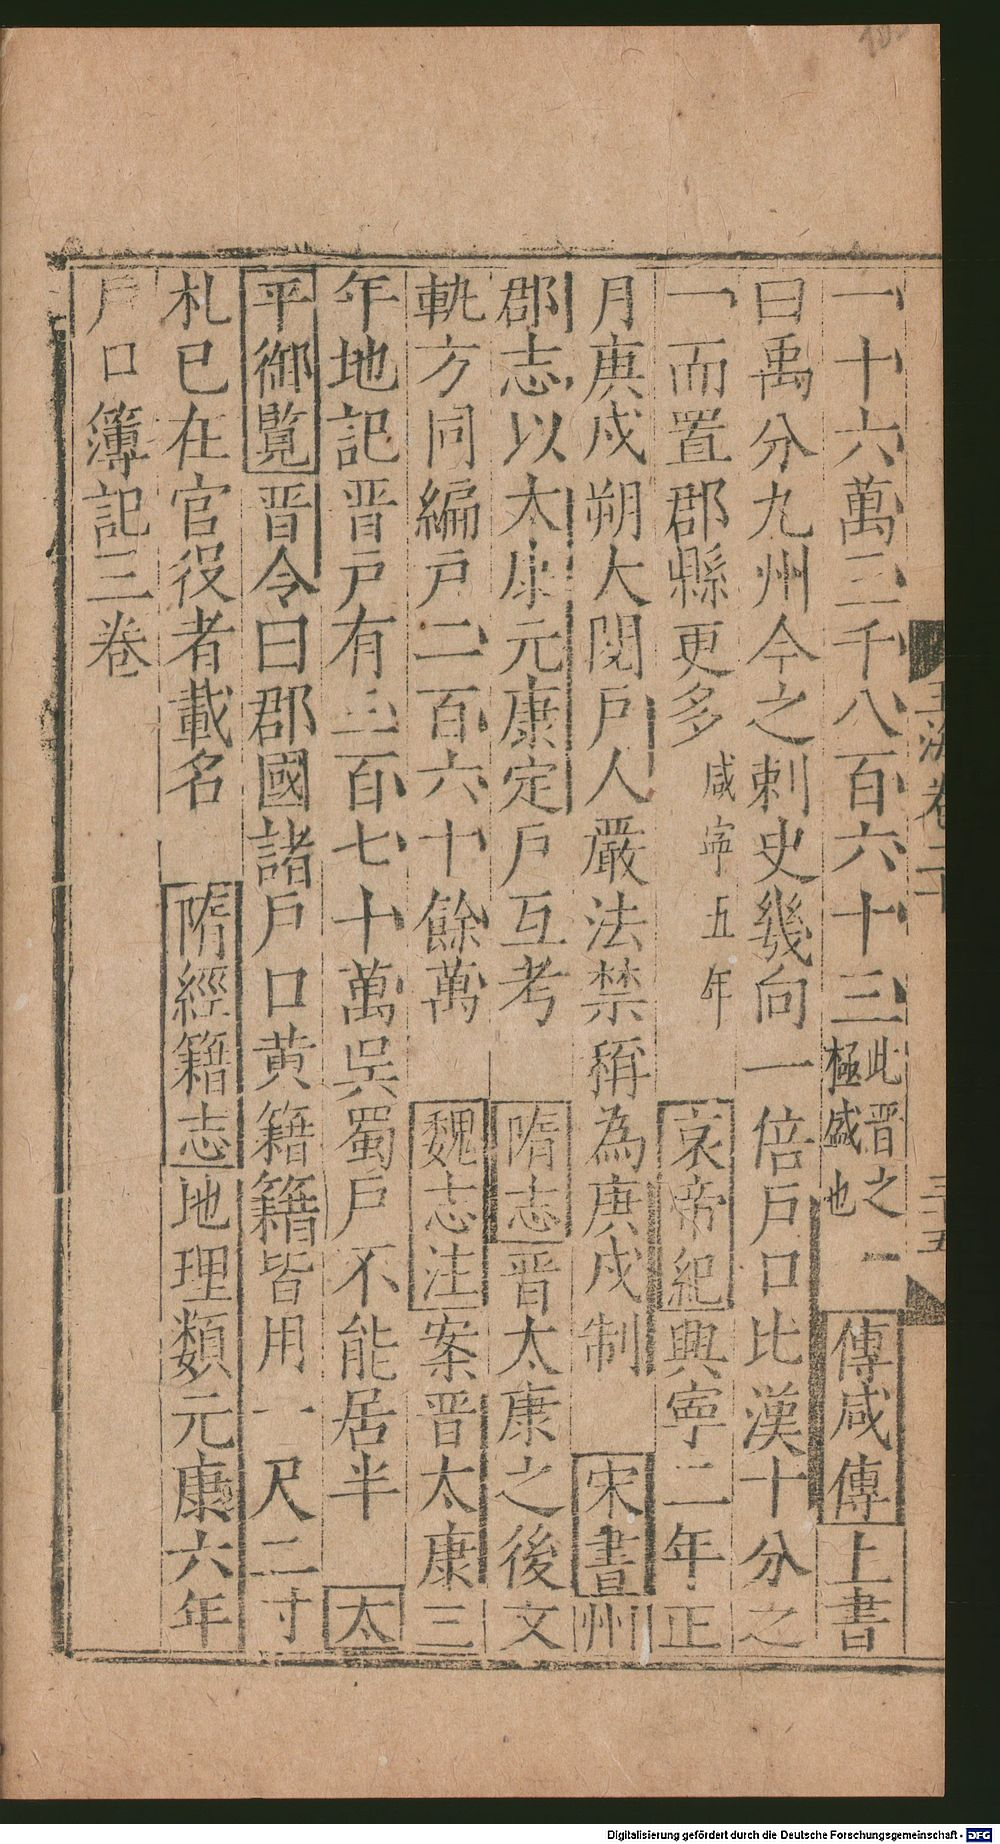 一十六萬三千八百六十三此晋之極盛也 傳咸傳上書
曰禹分九州今之刺史幾向一倍戶口比漢十分之
一而置郡縣更多咸寧五年 哀帝紀興寧二年正
月庚戍朔大閱戶人嚴法禁稱為庚戍制 宋書州
郡志以太康元康定戶互考 隋志晋太康之後文
軌方同編戶二百六十餘萬 魏志注案晋太康三
年地記晋戶有三百七十萬吳蜀戶不能居半 太
平御覽晋令曰郡國諸戶口黃籍籍皆用一尺二寸
札已在官役者載名 隋經籍志地理類元康六年
戶口簿記三卷
玉海卷二十
三五
Digitalisierung gefördert durch die Deutsche Forschungsgemeinschaft - DFG